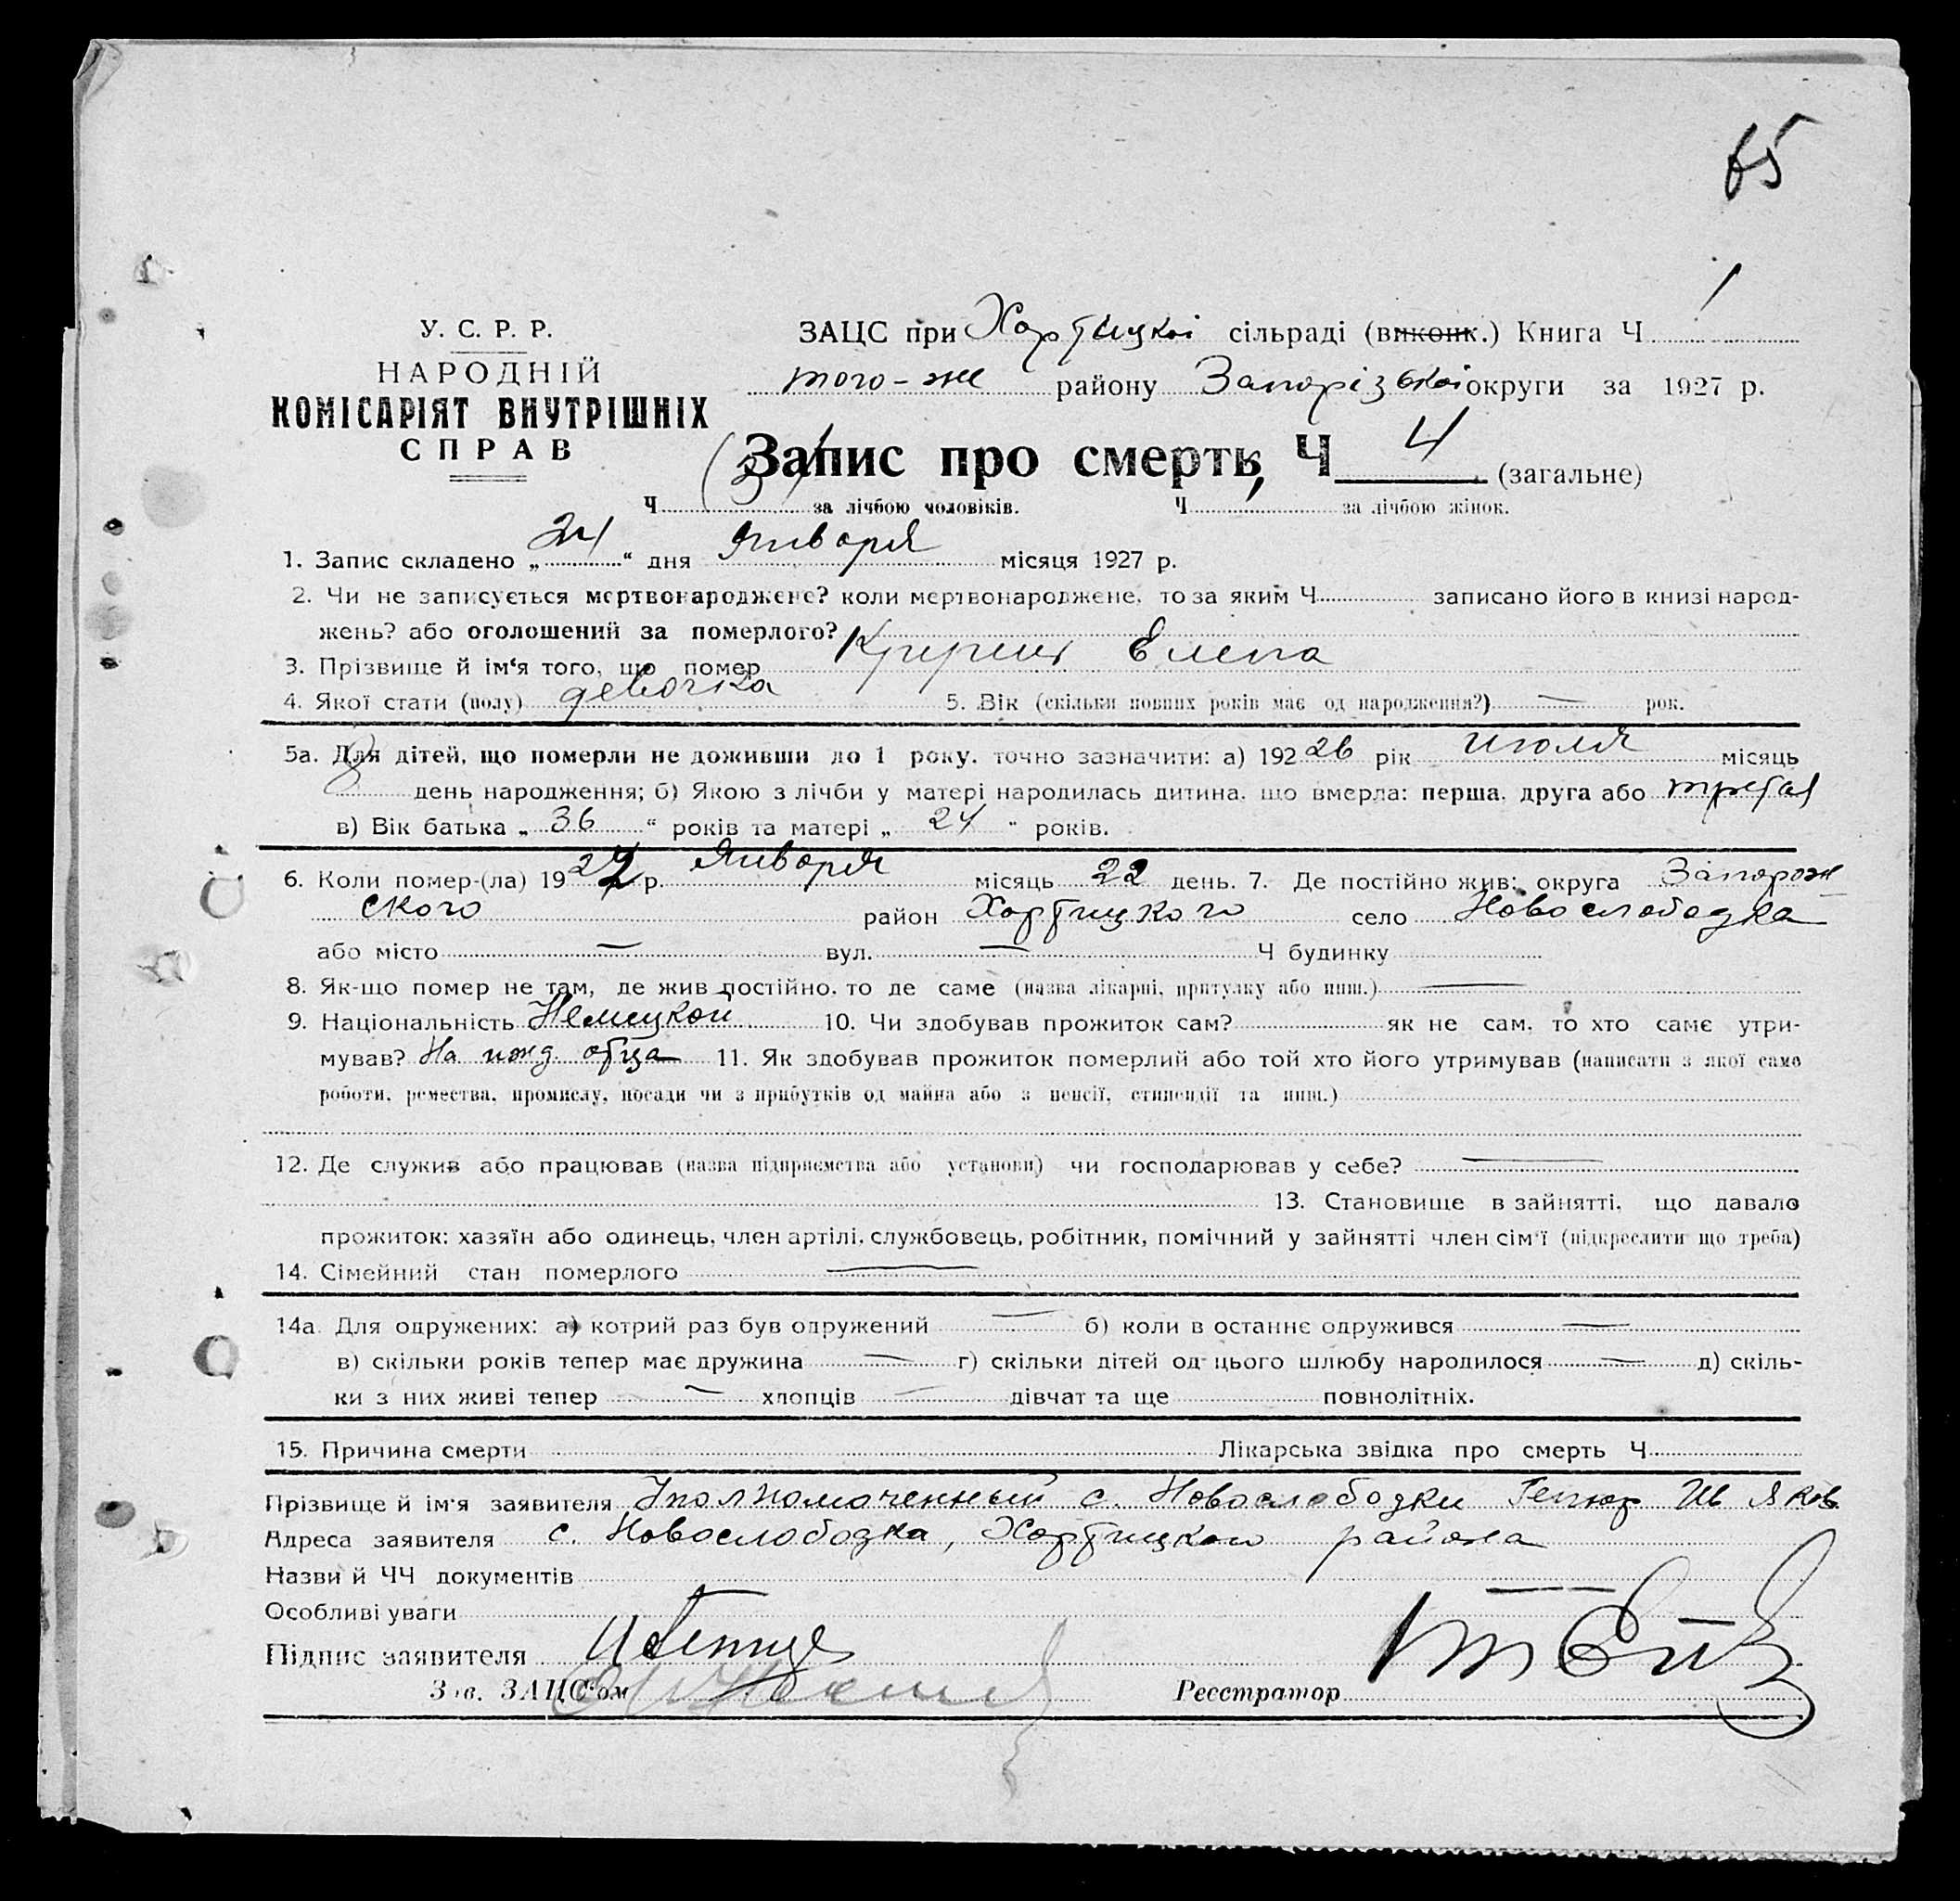 65
У. С. Р. Р.
НАРОДНІЙ
КОМІСАРІЯТ ВНУТРІШНІХ
СПРАВ
ЗАЦС при Хортицкоі сільраді (виконк.) Книга Ч 1
того-же району Запорізькоі округи за 1927 р.
Запис про смерть, Ч 4 (загальне)
Ч (3) за лічбою чоловіків. Ч за лічбою жінок.
1. Запис складено „24“ дня Января місяця 1927 р.
2. Чи не записується мертвонароджене? коли мертвонароджене, то за яким Ч записано його в книзі народ-
жень? або оголошений за померлого?
3. Прізвище й ім‘я того, що помер Елена
4. Якої стати (полу) девочка 5. Вік (скільки повних років має од народження?) — рок.
5а. Для дітей, що померли не доживши до 1 року, точно зазначити: а) 192 26 рік Июля місяць
8 день народження; б) Якою з лічби у матері народилась дитина, що вмерла: перша, друга або третая
в) Вік батька „ 36 “ років та матері „ 24 “ років.
6. Коли помер-(ла) 19 27 р. Января місяць 22 день. 7. Де постійно жив: округа Запорож
ского район Хортицкого село Новослободка
або місто — вул. — Ч будинку
8. Як-що помер не там, де жив постійно, то де саме (назва лікарні, притулку або инш.) —
9. Національність Немецкой 10. Чи здобував прожиток сам? як не сам, то хто саме утри-
мував? На ижд. отца 11. Як здобував прожиток померлий або той хто його утримував (написати з якої саме
роботи, ремества, промислу, посади чи з прибутків од майна або з пенсії, стипендії та инш.)
12. Де служив або працював (назва підприємства або установи) чи господарював у себе? —
13. Становище в зайнятті, що давало
прожиток: хазяїн або одинець, член артілі, службовець, робітник, помічний у зайнятті член сім‘ї (підкреслити що треба)
14. Сімейний стан померлого —
14а Для одружених: а) котрий раз був одружений — б) коли в останнє одружився —
в) скільки років тепер має дружина — г) скільки дітей од цього шлюбу народилося — д) скіль-
ки з них живі тепер — хлопців — дівчат та ще повнолітніх.
15. Причина смерти Лікарська звідка про смерть Ч
Прізвище й ім‘я заявителя Уполномоченный с. Новослободки Ив Яков
Адреса заявителя с. Новослободка, Хортицкого района
Назви й ЧЧ документів —
Особливі уваги
Підпис заявителя
Зав. ЗАЦС‘ом
Реєстратор